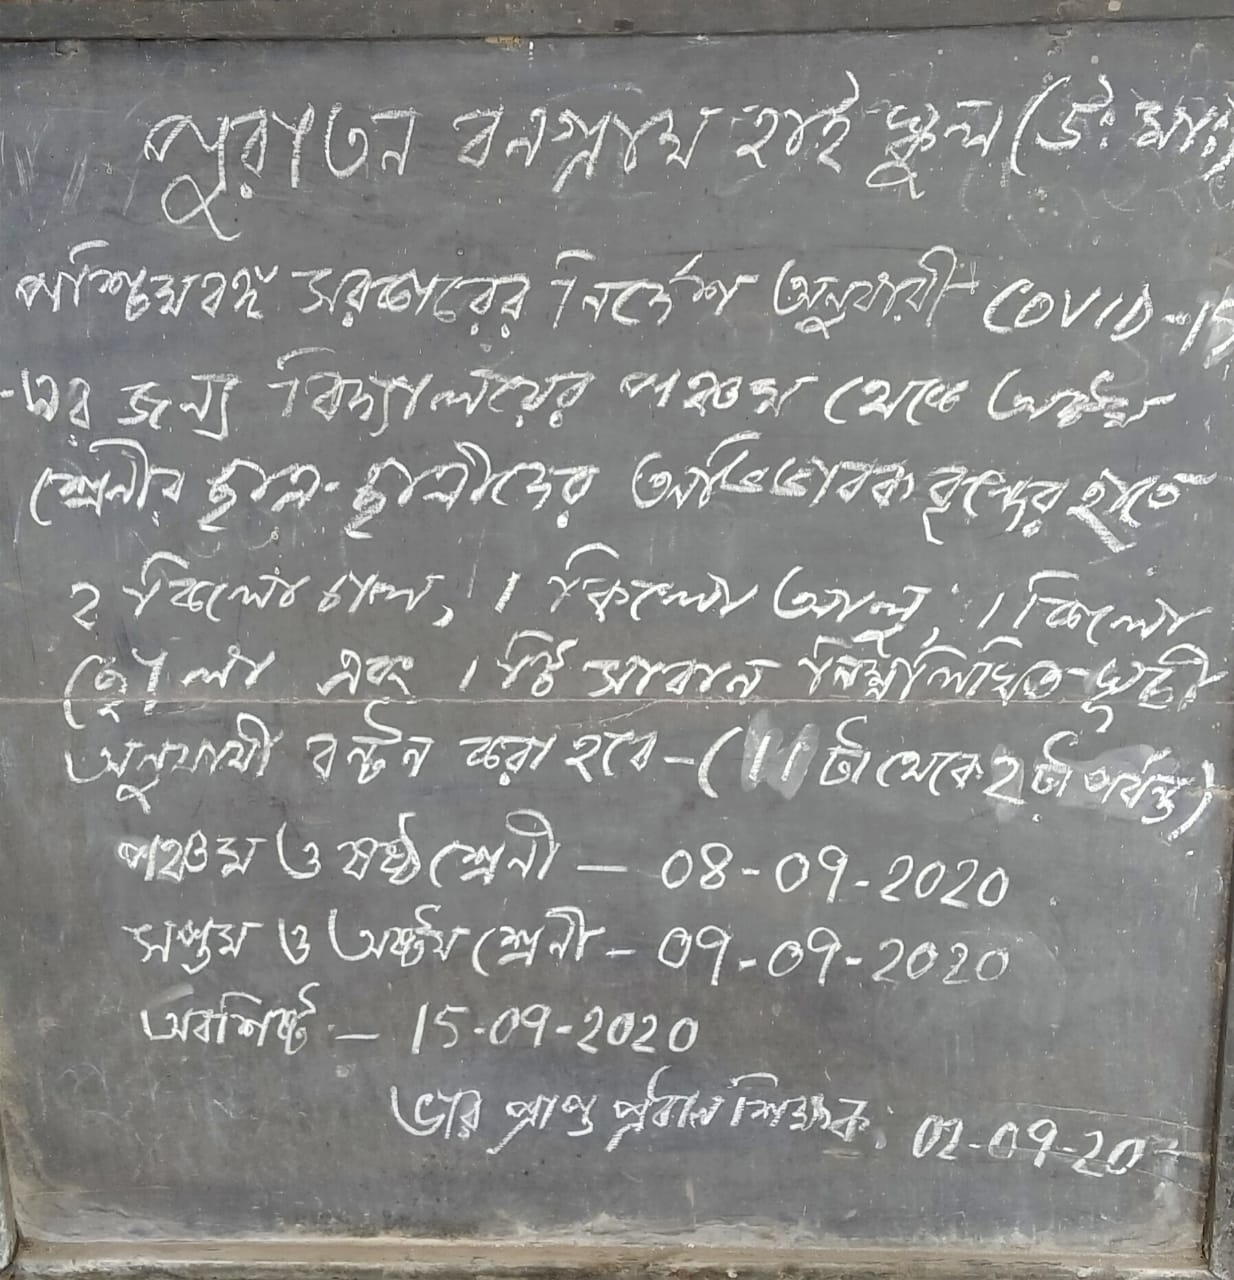 পুরাতন বনগ্রাম হাই স্কুল (উঃ মাঃ)
পশ্চিমবঙ্গ সরকারের নির্দেশ অনুযায়ী COVID-19
-এর জন্য বিদ্যালয়ের পঞ্চম থেকে অষ্টম
শ্রেনীর ছাত্র-ছাত্রীদের অভিভাবকবৃন্দের হাতে
২ কিলো চাল, 1 কিলো আলু, 1 কিলো
ছোলা এবং 1 টি সাবান নিম্নলিখিত সূচী
অনুযায়ী বন্টন করা হবে-(11 টা থেকে ২ টা পর্যন্ত)
পঞ্চম ও ষষ্ঠ শ্রেনী — 08-09-2020
সপ্তম ও অষ্টম শ্রেনী - 09-09-2020
অবশিষ্ট — 15-09-2020
ভার প্রাপ্ত প্রধান শিক্ষক. 02-09-20